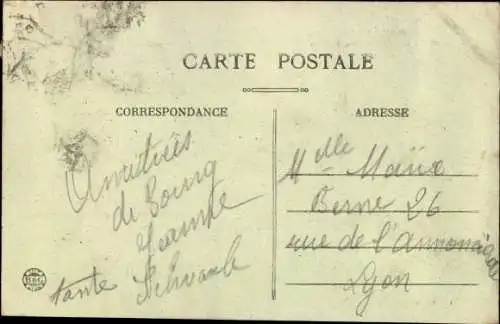 CARTE POSTALE
CORRESPONDANCE
Amitiées
de Bourg
tante Schwarb
ADRESSE
Mlle
Berne 26
rue de l'Annonciade
Lyon